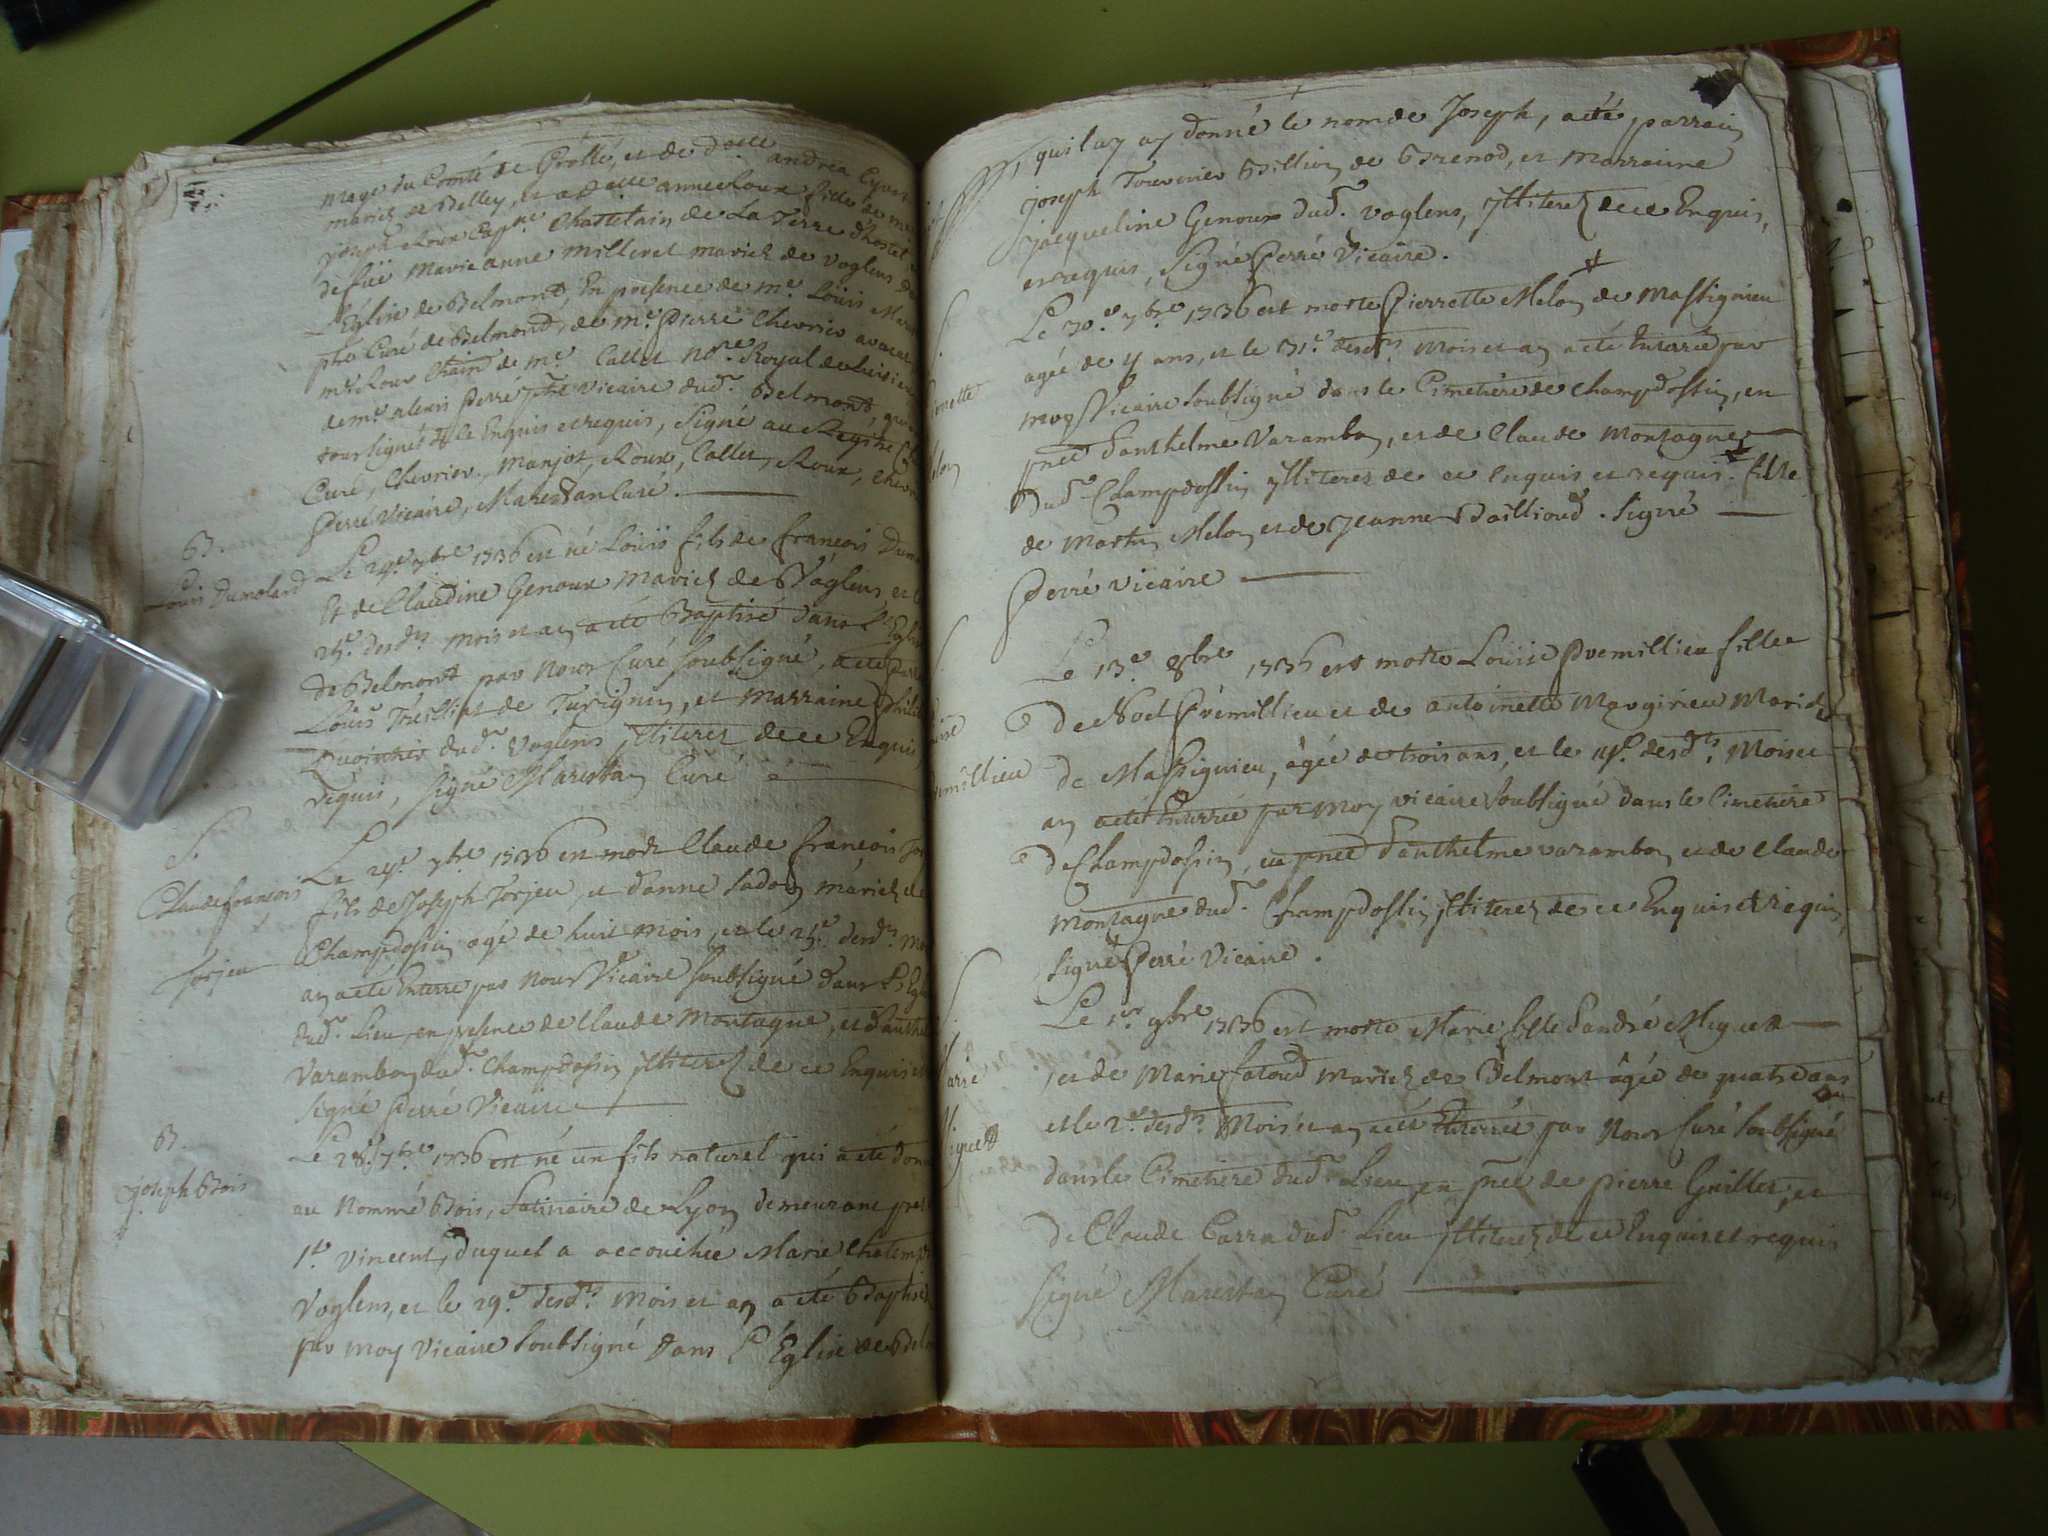 mage du Comté de Grôlée, et de d.elle andrea Cyvoct
mariez de Belley, et a d.elle anne Roux fille de me
joseph Roux Cap.ne Chastelain de La Terre d'hostel
de fuë Marie anne Milleret mariez de Voglens, da
L'Eglise de Belmont, En presence de m.e Loüis Mares
p.tre Curé de Belmond, de m.e Pierre Chevrier avocat
de m.e Callet No.re Royal de
de m.e alexis Perré p.tre vicaire dud.t Belmont, qui
soussignés de ce Enquis et requis, Signé au Registre
Curé, Chevrier, Manjot, Roux, Callet, Roux, Chevr
Perré Vicaire, Marestan Curé.
B.
Louis Dumolard
Le 24.e 7bre 1736 est né Loüis fils de françois Dumo
Et de Claudine Genoux Mariez de Voglens, et l
25.e desd.ts mois et an a été Baptisé dans L'Egli
de Belmont par Nous Curé soubsigné, a été par
Louis Trülliet de Turignin, et Marraine Phili
dud.t Voglens Illiterez de ce Enquis
requis, Signé Marestan Curé
S.
Claude françois
Jorjeu
Le 24.e 7bre 1736 est mort Claude françois Jor
fils de Joseph Jorjeu, et d'anne Sadon mariez de
Champdossin agé de huit mois, et le 25.e desd.ts mo
an a été Enterré par Nous Vicaire soubsigné dans L'Egli
dud.t Lieu, en presence de Claude Montagne, et d'anthel
Varambon dud.t Champdossin Illiterez de ce Enquis et
Signé Perré Vicaire
B.
Joseph Bois
Le 28.e 7bre 1736 est né un fils naturel qui a été don
au Nommé Bois, Satinaire de Lyon demeurant pres
S.t Vincent, duquel a accouchée Marie Chatem
Voglens, et le 29.e desd.ts Mois et an a été Baptisé
par moy Vicaire soubsigné dans L'Eglise de Bel
qui luy ay donné le nom de Joseph, a été parrain
joseph Tournier Billion de Brenod, et Marraine
jacqueline Genoux dud.t Voglens, Illiterez de ce Enquis,
et requis, Signé Perré Vicaire.
S.
Le 30.e 7bre 1736 est morte Pierrette Melon de Massignieu
agée de 4 ans, et le 31.e desd.ts Mois et an a été Enterré par
moy Vicaire soubsigné dans le Cimetière de Champdossin, en
p.nce d'anthelme Varambon, et de Claude Montagne
dud.t Champdossin Illiterez de ce Enquis et requis. fille
de Martin Melon et de Jeanne Baillioud. Signé
Perré Vicaire
S.
Le 13.e 8bre 1736 est morte Loüise Premillieu fille
de Noel Prémillieu et de antoinette Margirieu Mariez
de Massignieu, âgée de trois ans, et le 14.e desd.ts Mois et
an a été Enterrée par moy vicaire soubsigné dans le Cimetière
de Champdossin, en p.nce d'anthelme varambon et de Claude
Montagne dud.t Champdossin Illiterez de ce Enquis et requis,
Signé Perré Vicaire.
S.
Le 1.er 9bre 1736 est morte Marie fille d'andré Miguet
et de Marie Mariez de Belmont âgée de quatre ans
et le 2.e desd.ts Mois et an a été Enterrée par Nous Curé soubsigné
dans le Cimetière dud.t Lieu en p.nce de pierre Guillet, et
de Claude Carra dud.t Lieu Illiterez de ce Enquis et requis
Signé Marestan Curé